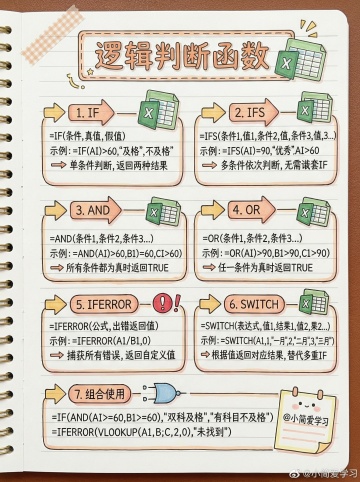 逻辑判断函数
1. IF
=IF(条件,真值,假值)
示例:=IF(AI)>60,"及格",不及格"
单条件判断,返回两种结果
2. IFS
=IFS(条件1,值1,条件2,值,条件3,值,3...)
示例:=IFS(AI)=90,"优秀"AI>60
多条件依次判断,无需嵌套IF
3. AND
=AND(条件1,条件2,条件3...)
示例:=AND(AI)>60,B1)=60,CI>60)
所有条件都为真时返回TRUE
4. OR
=OR(条件1,条件2,条件3...)
示例:=OR(AI)>90,B1>90,CI>90)
任一条件为真时返回TRUE
5. IFERROR
=IFERROR(公式,出错返回值)
示例:=IFERROR(A1/B1,0)
捕获所有错误,返回自定义值
6. SWITCH
=SWITCH(表达式,值1,结果1,值2,果2...)
示例:=SWITCH(A1,1,"一月",2,"二月"3,"三月")
根据值返回对应结果,替代多重IF
7. 组合使用
=IF(AND(AI>=60,B1>=60),"双科及格","有科目不及格")
=IFERROR(VLOOKUP(A1,B;C,2,0),"未找到")
@小简爱学习
@小简爱学习